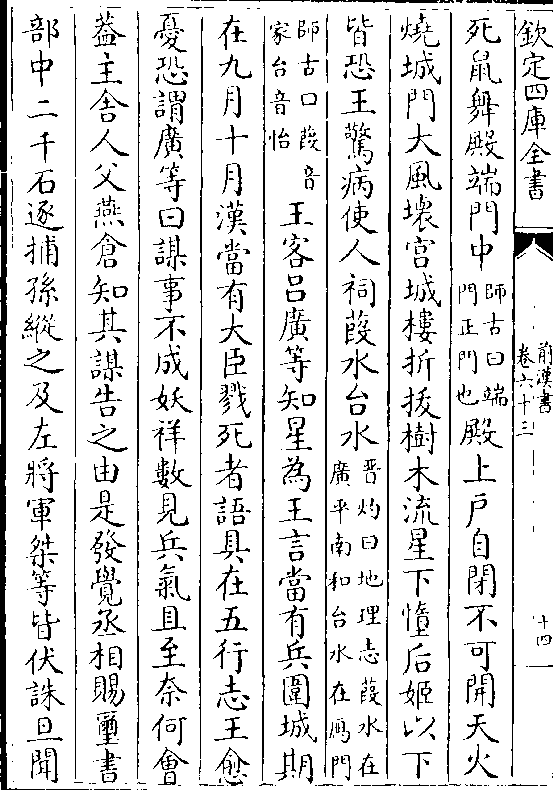 欽定四庫全書
前漢書
卷六十三
十四
死鼠舞殿端門中師古曰端門正門也殿上戶自閉不可開天火
燒城門大風壞宮城樓折拔樹木流星下憧后姬以下
皆恐王驚病使人祠葭水台水晉灼曰地理志葭水在廣平南和台水在鴈門
師古曰葭音家台音怡王客呂廣等知星為王言當有兵圍城期
在九月十月漢當有大臣戮死者語具在五行志王愈
憂恐謂廣等曰謀事不成妖祥數見兵氣且至奈何會
葢主舍人父燕倉知其謀告之由是發覺丞相賜璽書
部中二千石逐捕孫縱之及左將軍桀等皆伏誅旦聞